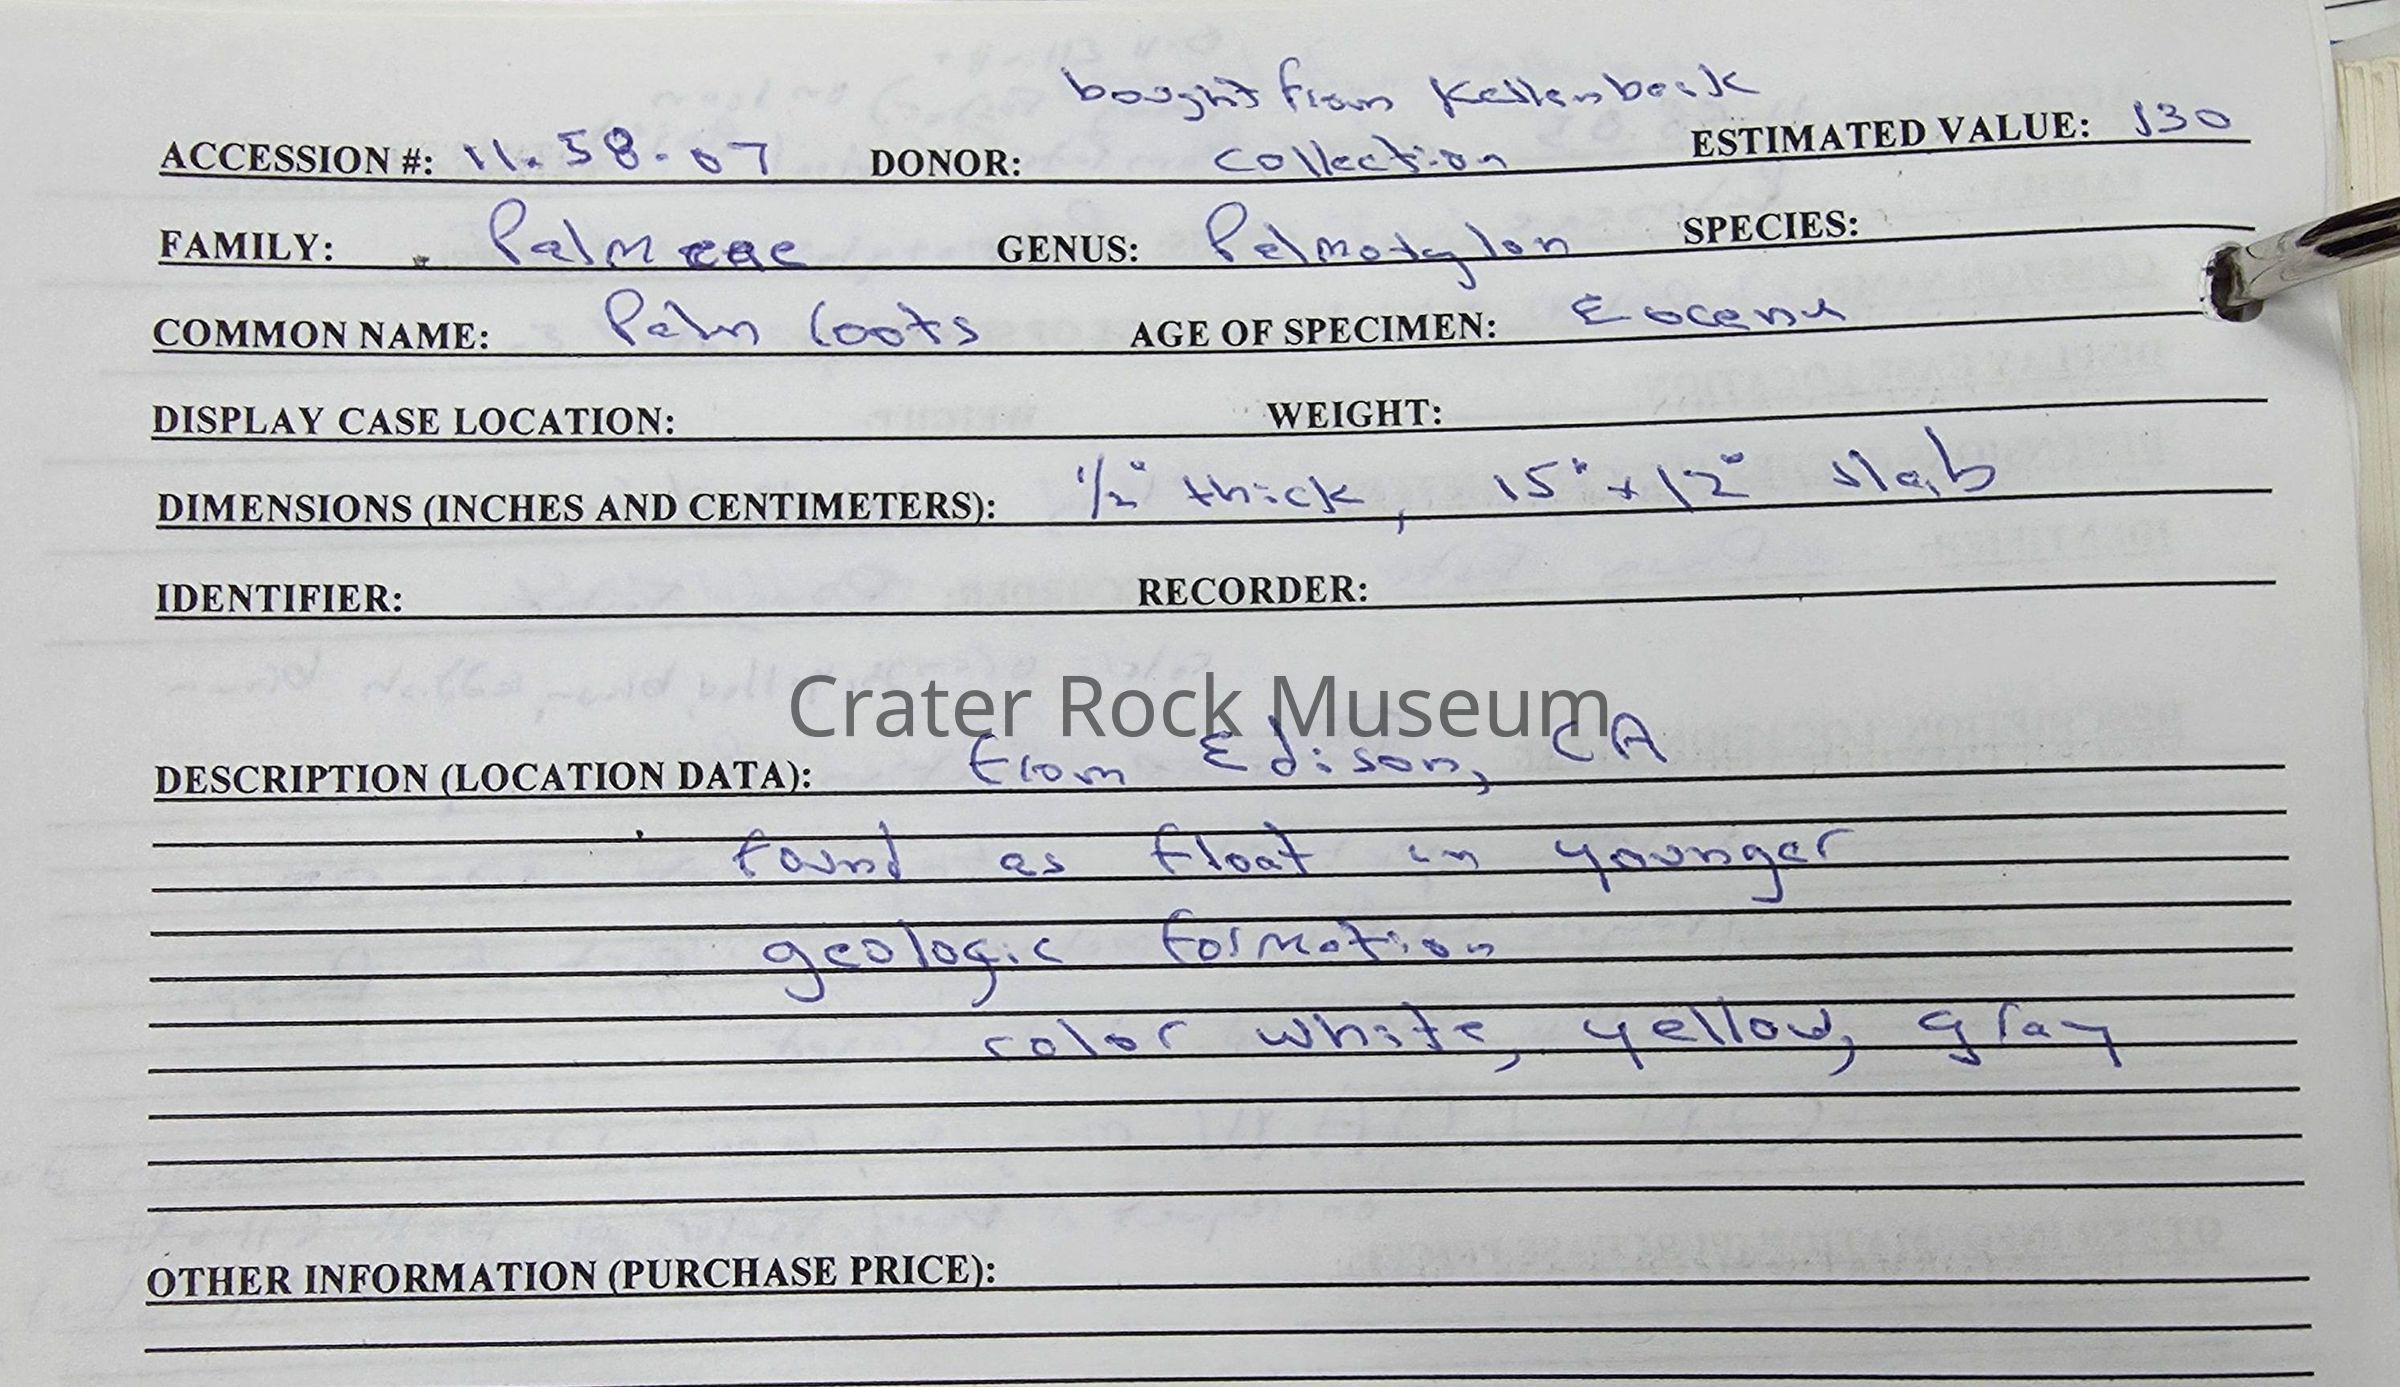 bought from Kellenbeck
ACCESSION #: 11.58.07 DONOR: collection ESTIMATED VALUE: 130
FAMILY: Palmeae GENUS: Palmoxylon SPECIES:
COMMON NAME: Palm roots AGE OF SPECIMEN: Eocene
DISPLAY CASE LOCATION: WEIGHT:
DIMENSIONS (INCHES AND CENTIMETERS): 1/2" thick, 15" x 12" slab
IDENTIFIER: RECORDER:
Crater Rock Museum
DESCRIPTION (LOCATION DATA): from Edison, CA
found as float in younger
geologic formation
color white, yellow, gray
OTHER INFORMATION (PURCHASE PRICE):